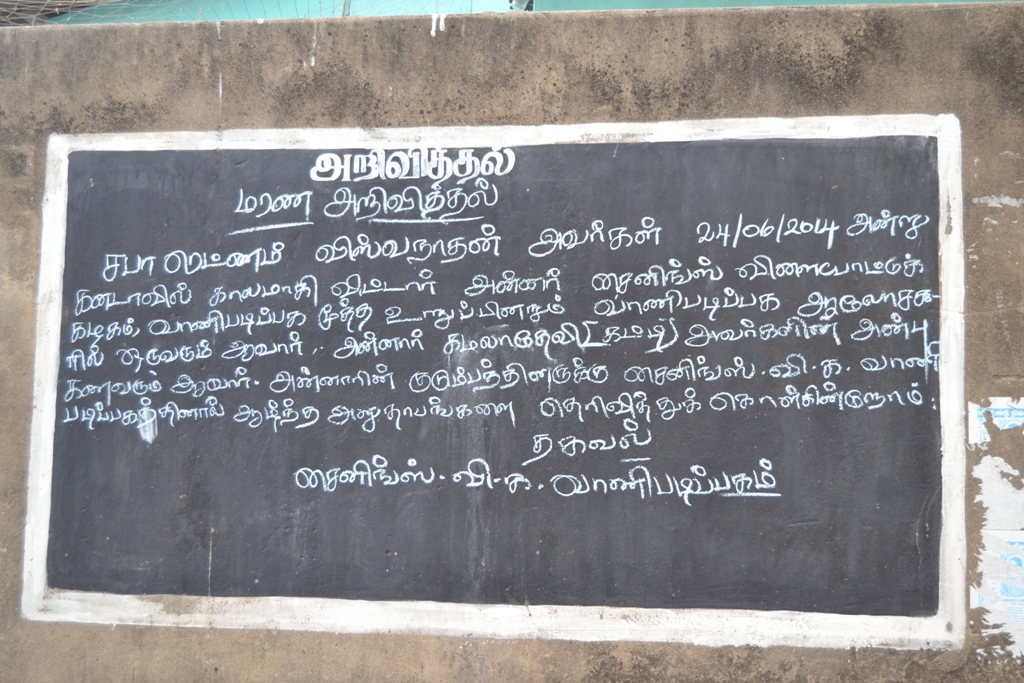 அறிவித்தல்
மரண அறிவித்தல்
சபா ரெட்ணம் விஸ்வநாதன் அவர்கள் 24/06/2014 அன்று
கனடாவில் காலமாகி விட்டார் அன்னார் சைனிங்ஸ் விளையாட்டுக்
கழகம், வாணிபடிப்பக மூத்த உறுப்பினரும் வாணிபடிப்பக ஆலோசக-
ரில் ஒருவரும் ஆவார். அன்னார் கமலாதேவி அவர்களின் அன்பு
கணவரும் ஆவார். அன்னாரின் குடும்பத்தினருக்கு சைனிங்ஸ். வி. க. வாணி
படிப்பகத்தினால் ஆழ்ந்த அனுதாபங்களை தெரிவித்துக் கொள்கின்றோம்.
தகவல்
சைனிங்ஸ். வி. க. வாணிபடிப்பகம்